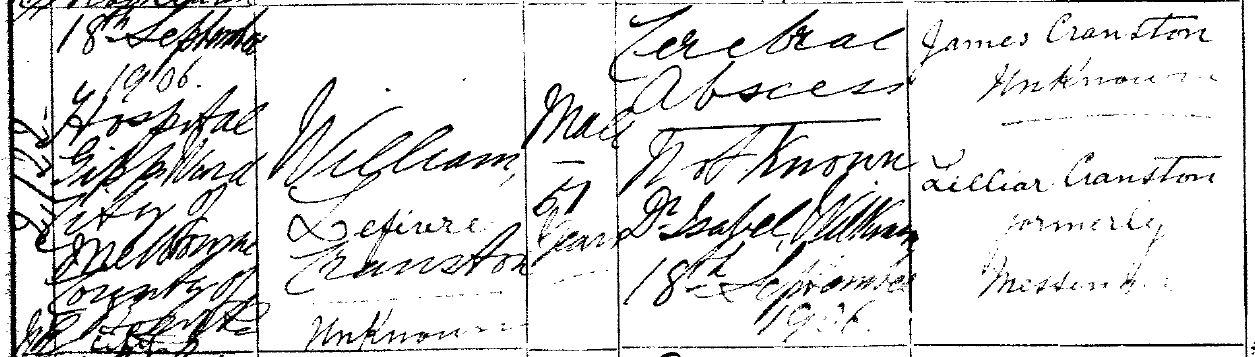 18th September
1906.
Hospital
Gipps Ward
City of
Melbourne
County of
Bourke
William
Lefivre
Cranston
Unknown
Male
51
Years
Cerebral
Abscess
Not Known
Dr Isabel
18th September
1906.
James Cranston
Unknown
Lillias Cranston
formerly
Messenger